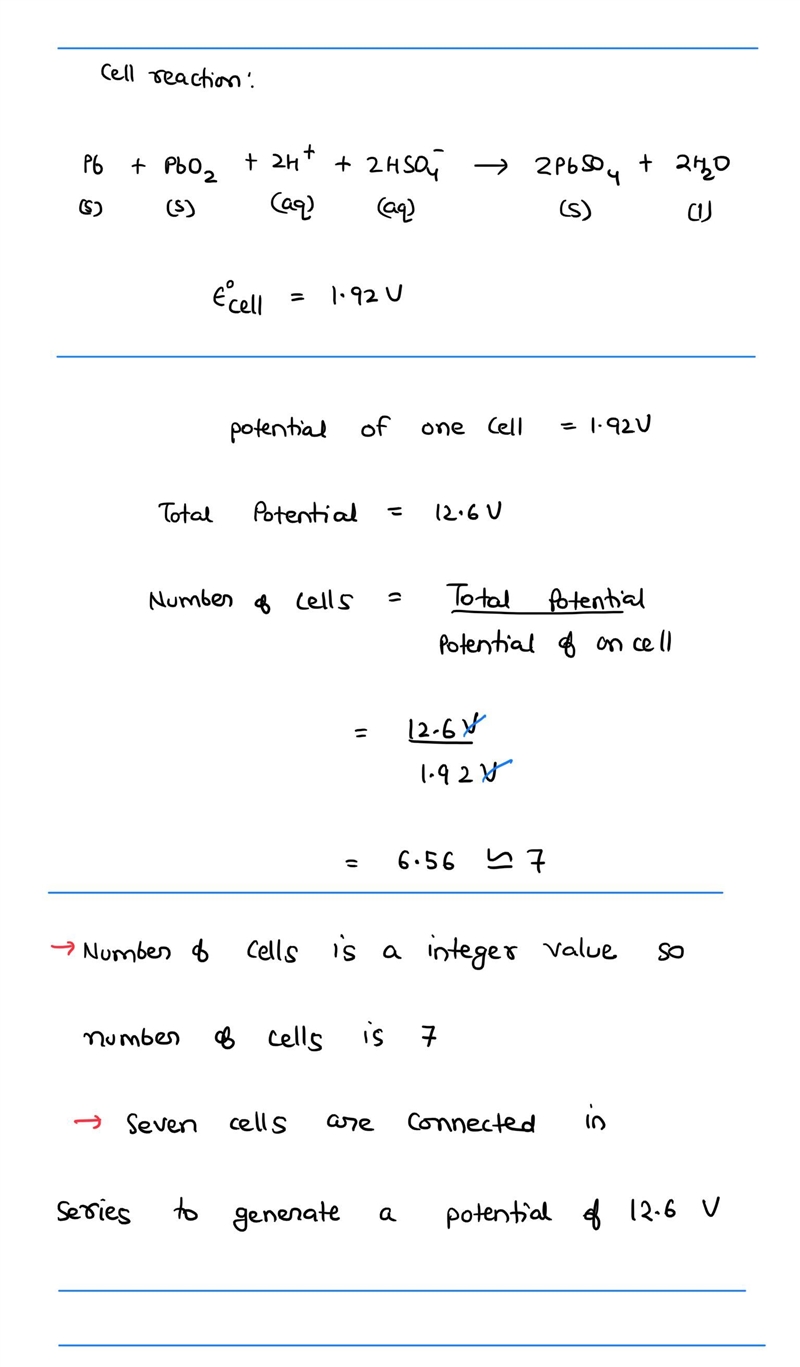 Cell reaction:
Pb + PbO2 + 2H+ + 2HSO4- → 2PbSO4 + 2H2O
(s) (s) (aq) (aq) (s) (l)
ε°cell = 1.92 V
potential of one cell = 1.92V
Total Potential = 12.6 V
Number of cells = Total Potential
Potential of on cell
= 12.6 V
1.92 V
= 6.56 ≃ 7
→ Number of cells is a integer value so
number of cells is 7
→ Seven cells are connected in
series to generate a potential of 12.6 V